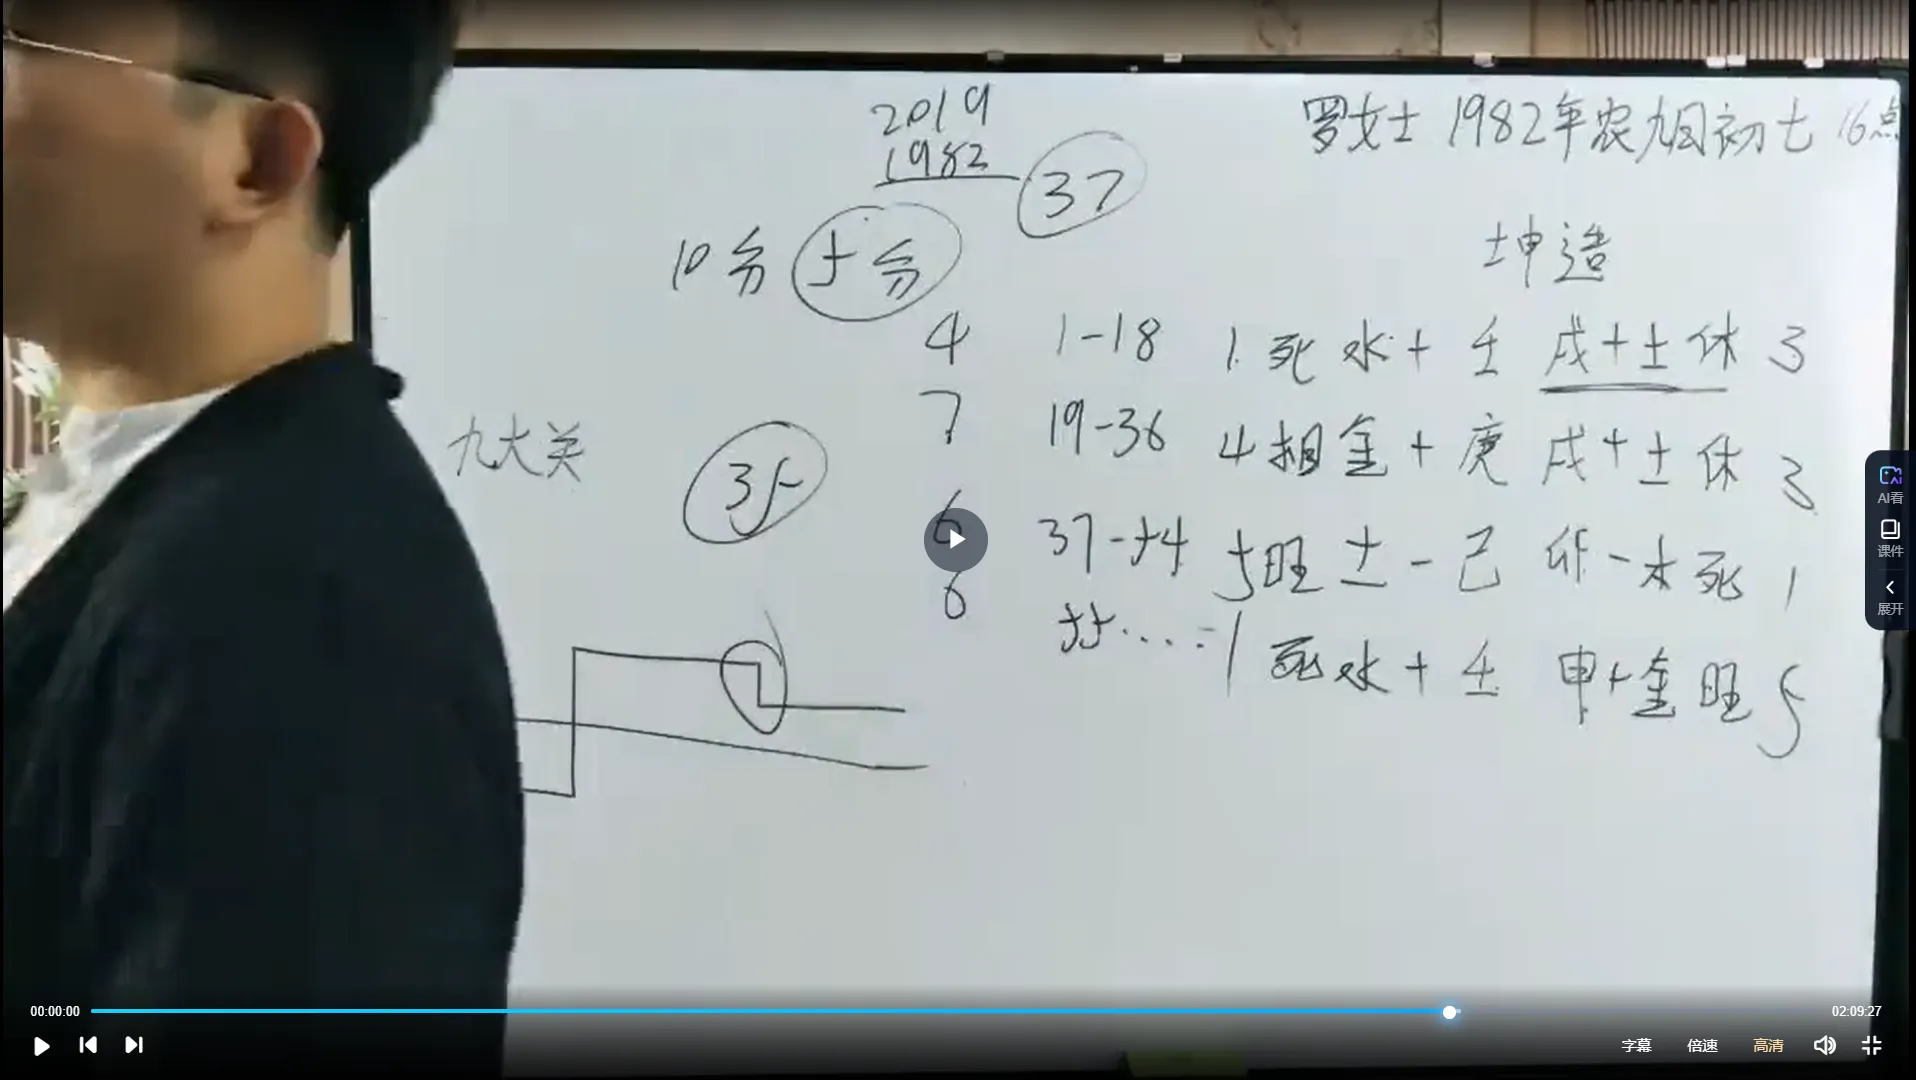 2019
1982
37
罗女士 1982年农九月初七 16点
坤造
10分 5分
4 1-18 1.死水+壬 戌+土休 3
7 19-36 4相金+庚 戌+土休 3
6 37-54 5旺土-己 卯-木死 1
6 55....-1死水+壬 申+金旺5
九大关
35
AI看
课件
展开
00:00:00
02:09:27
字幕 倍速 高清